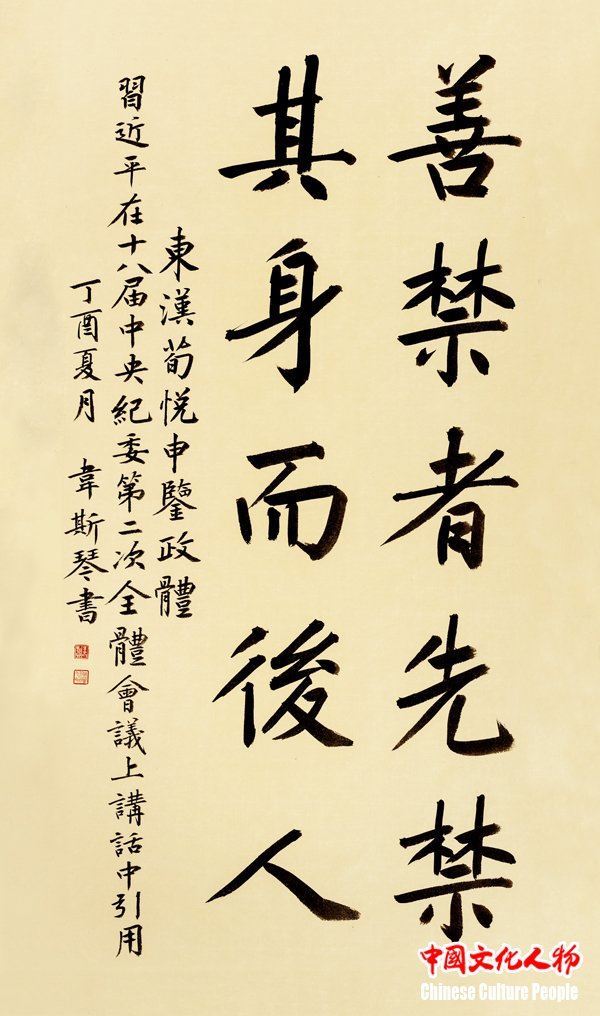 善禁者先禁
其身而後人
東漢荀悅申鑒政體
習近平在十八届中央紀委第二次全體會議上講話中引用
丁酉夏月 韋斯琴書
中國文化人物
Chinese Culture People